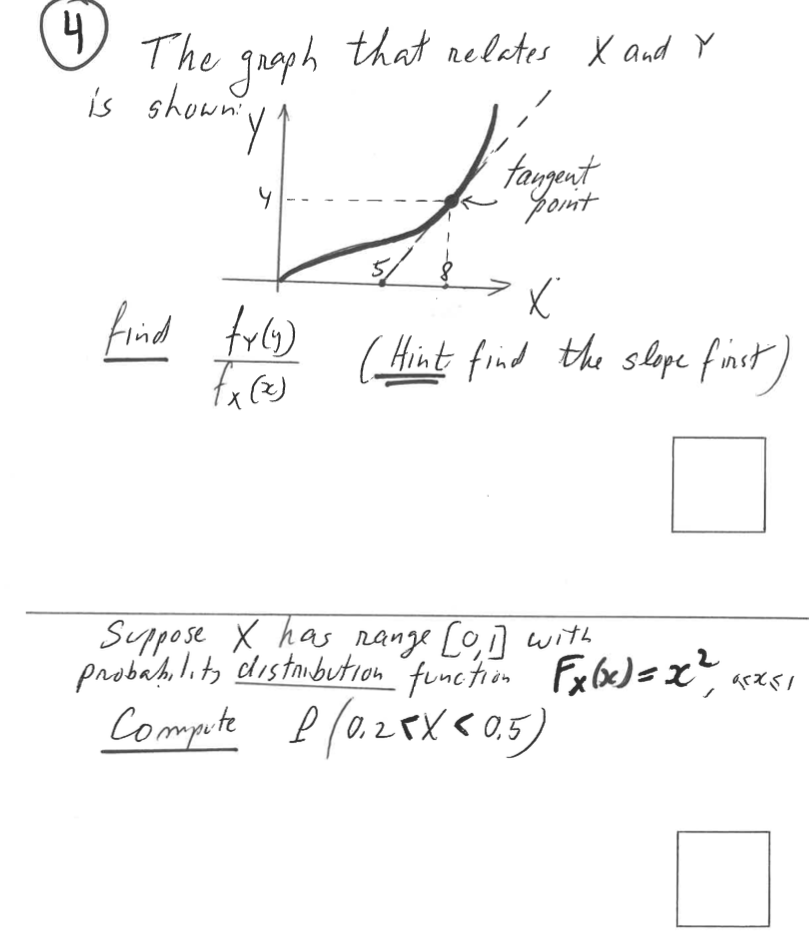 4 The graph that relates X and Y
is shown:
Y
tangent
point
4
5 8
X
find fY(y)/fX(x) (Hint: find the slope first)
Suppose X has range [0,1] with
probability distribution function FX(x) = x², 0≤x≤1
Compute P(0.2<X<0.5)